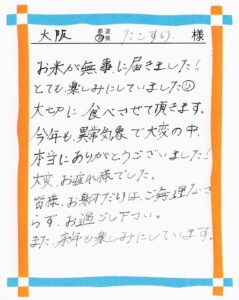 大阪 都道府県 たこすけ 様
お米が無事に届きました!
とても楽しみにしていました
大切に食べさせて頂きます。
今年も異常気象で大変の中、
本当にありがとうございました!
大変、お疲れ様でした。
皆様、お身体だけは、ご無理なさ
らず、お過ごし下さい。
また、来年も楽しみにしています。